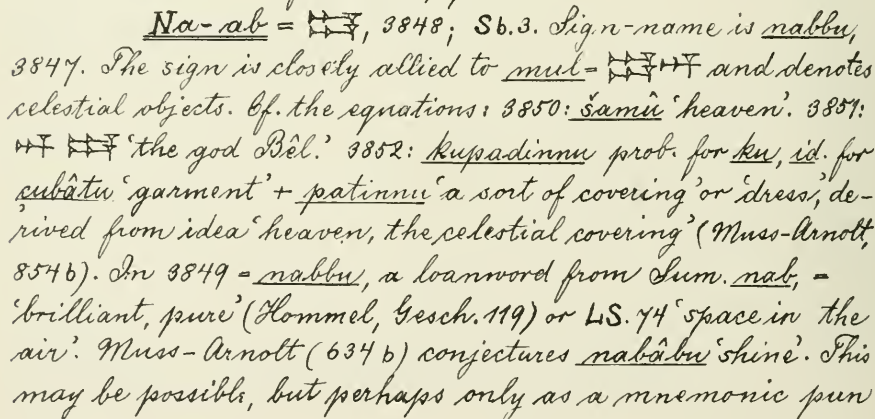 Na-ab = 𒀮, 3848; Sb.3. Sign-name is nabbu,
3847. The sign is closely allied to mul = 𒀯 and denotes
celestial objects. Cf. the equations: 3850: šamû ‘heaven’. 3851:
𒀭 𒀮 ‘the god Bêl.’ 3852: kupadinnu prob. for ku, id. for
çubâtu ‘garment’ + patinnu ‘a sort of covering’ or ‘dress’, de-
rived from idea ‘heaven, the celestial covering’ (Muss-Arnolt,
854b). In 3849 = nabbu, a loanword from Sum. nab, =
‘brilliant, pure’ (Hommel, Gesch. 119) or LS. 74 ‘space in the
air’. Muss-Arnolt (634b) conjectures nabâbu ‘shine’. This
may be possible, but perhaps only as a mnemonic pun